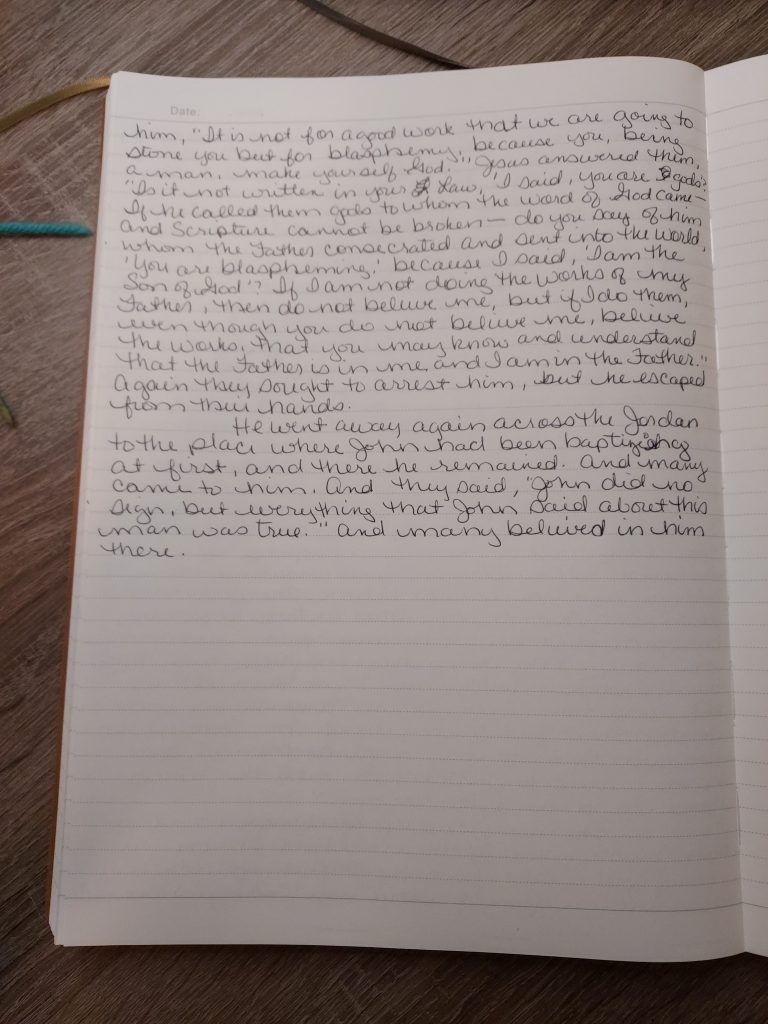 Date
him, "It is not for a good work that we are going to
stone you but for blasphemy, because you, being
a man, make yourself God." Jesus answered them,
"Is it not written in your Law, 'I said, you are gods'?
If he called them gods to whom the word of God came—
and Scripture cannot be broken— do you say of him
whom the Father consecrated and sent into the world,
'You are blaspheming,' because I said, 'I am the
Son of God'? If I am not doing the works of my
Father, then do not believe me, but if I do them,
even though you do not believe me, believe
the works, that you may know and understand
that the Father is in me and I am in the Father."
Again they sought to arrest him, but he escaped
from their hands.
He went away again across the Jordan
to the place where John had been baptizing
at first, and there he remained. And many
came to him. And they said, "John did no
sign, but everything that John said about this
man was true." And many believed in him
there.